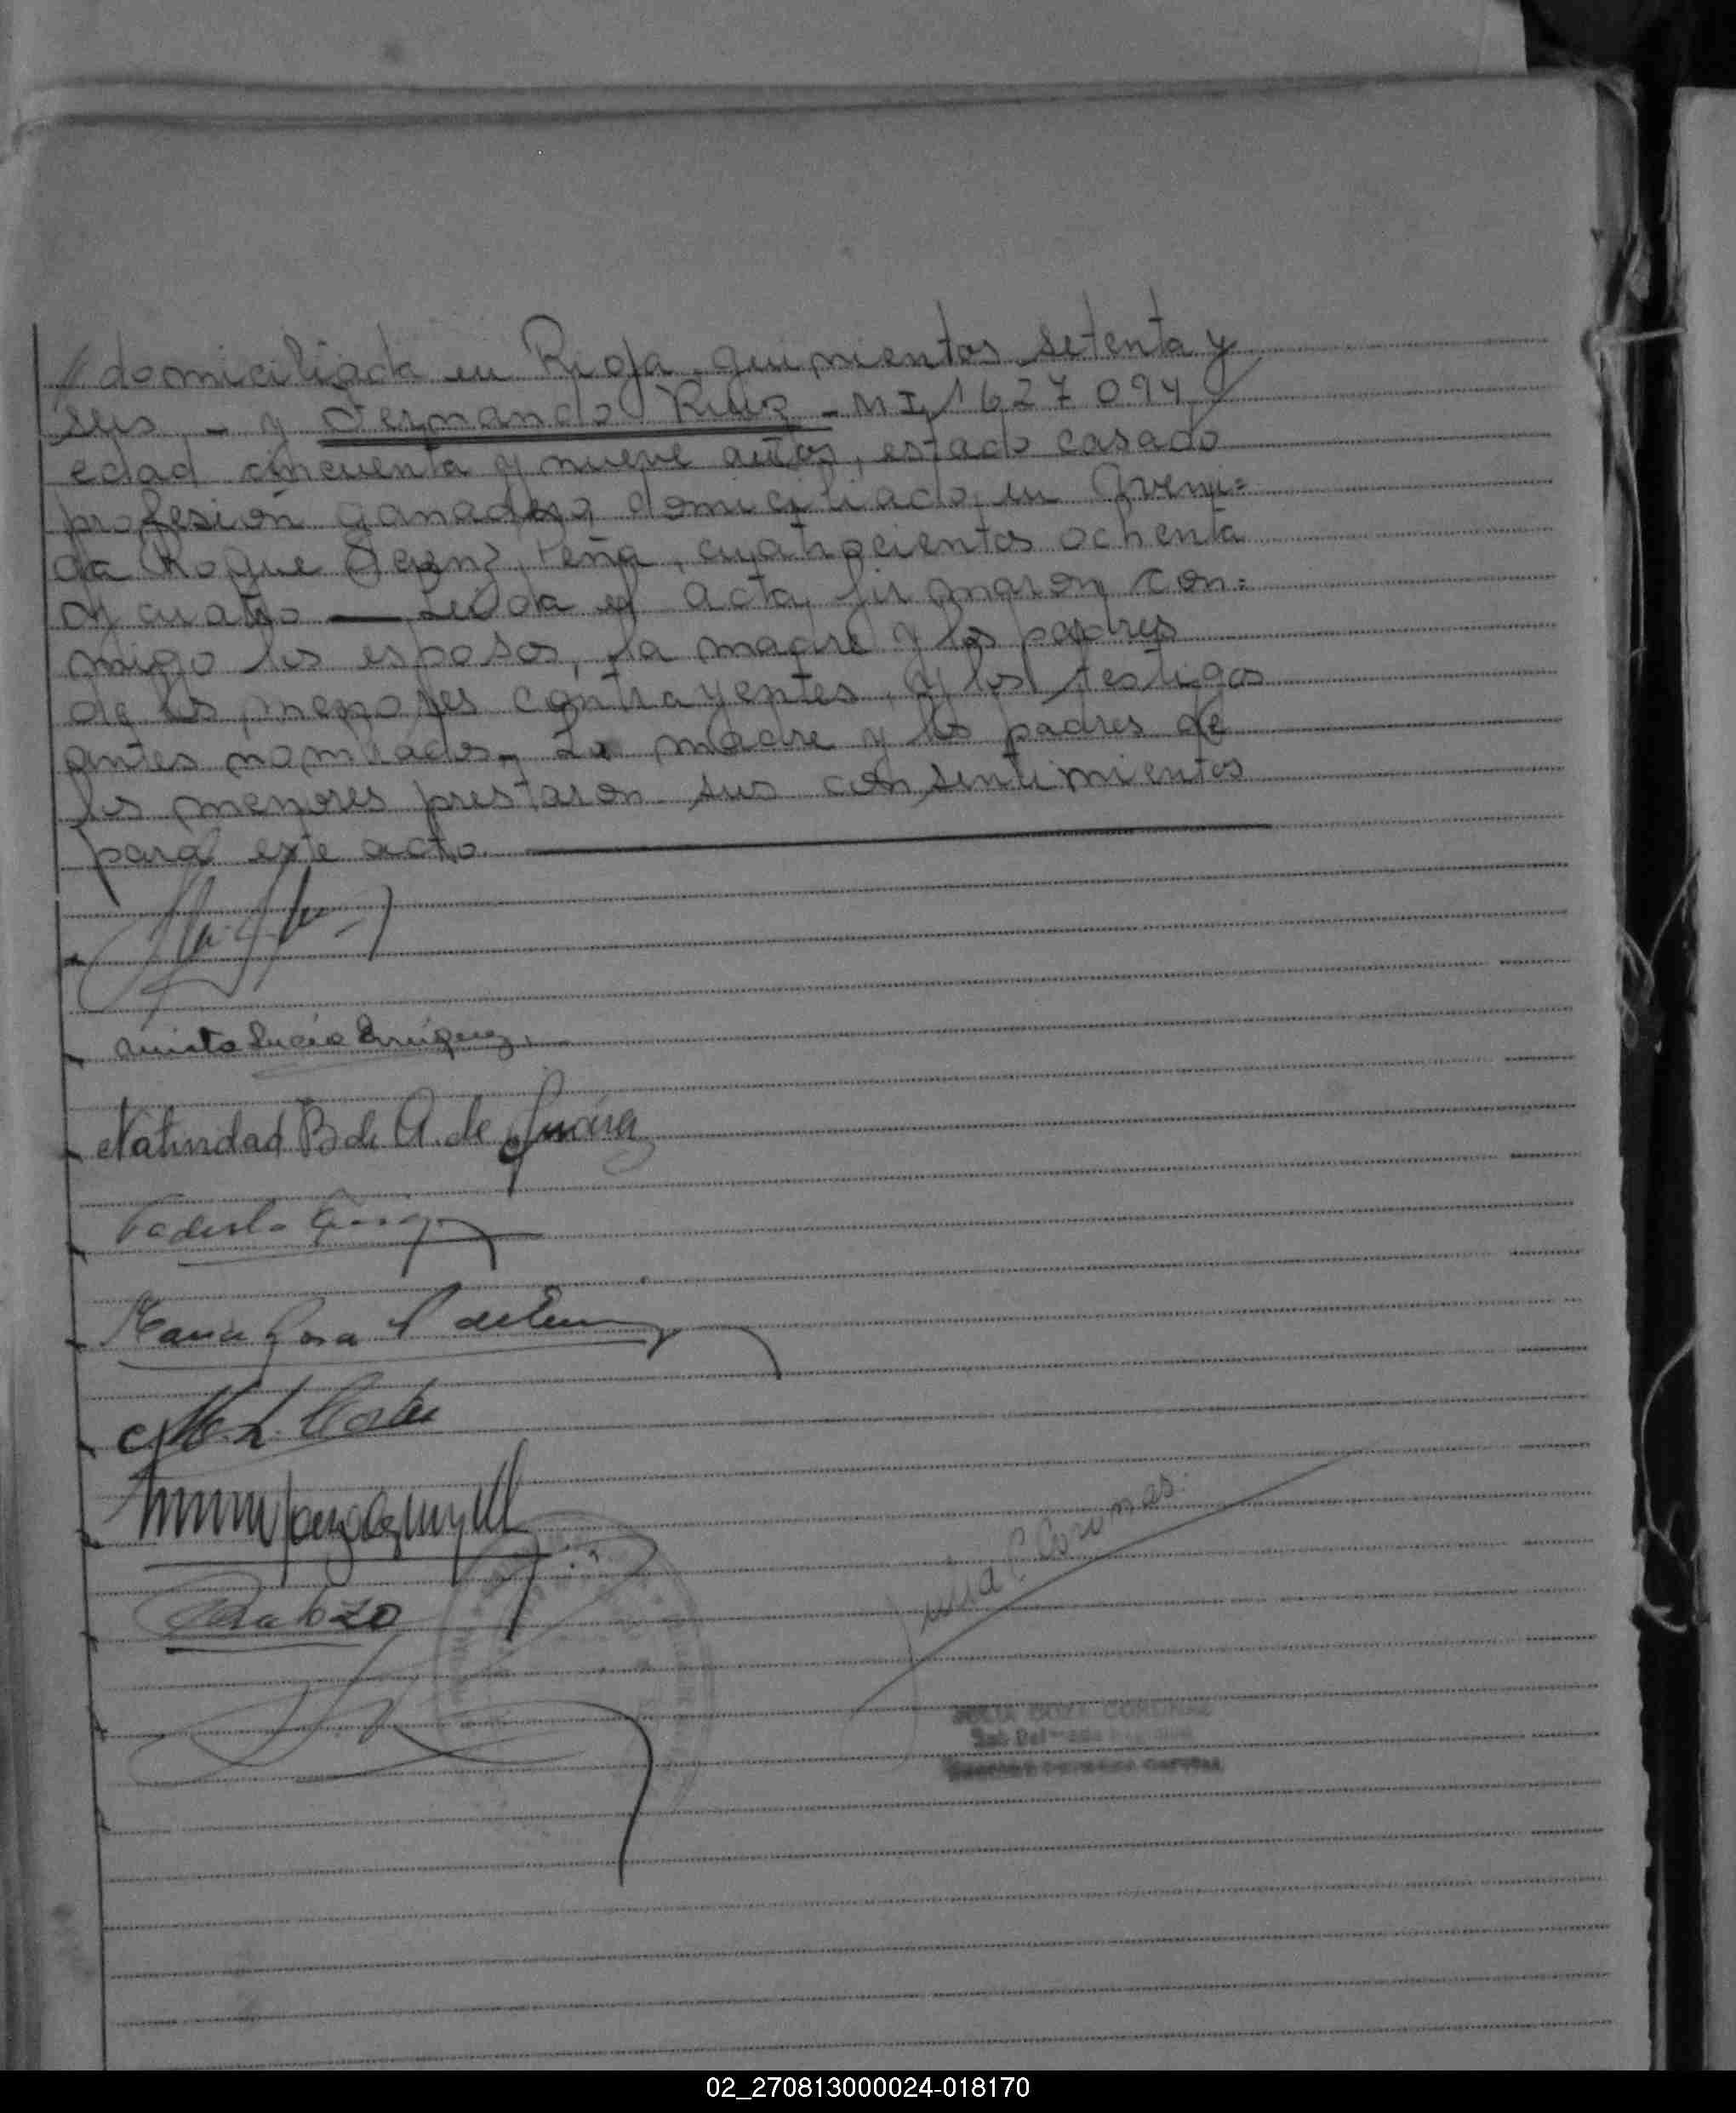 // domiciliada en Rioja quinientos setenta y
seis - y Fernando Ruiz - MI, 1627094,
edad cincuenta y nueve años, estado casado
profesión ganadero, domiciliado en Aveni=
da Roque Saenz Peña, cuatrocientos ochenta
y cuatro — Leída el acta, firmaron con=
migo los esposos, la madre y los padres
de los menores contrayentes, y los testigos
antes nombrados - La madre y los padres de
los menores prestaron sus consentimientos
para este acto.
Lucía Enriquez
Natividad B de A. de
Maria Rosa
Julia C. Coronas
JULIA COLL CORONAS
02_270813000024-018170